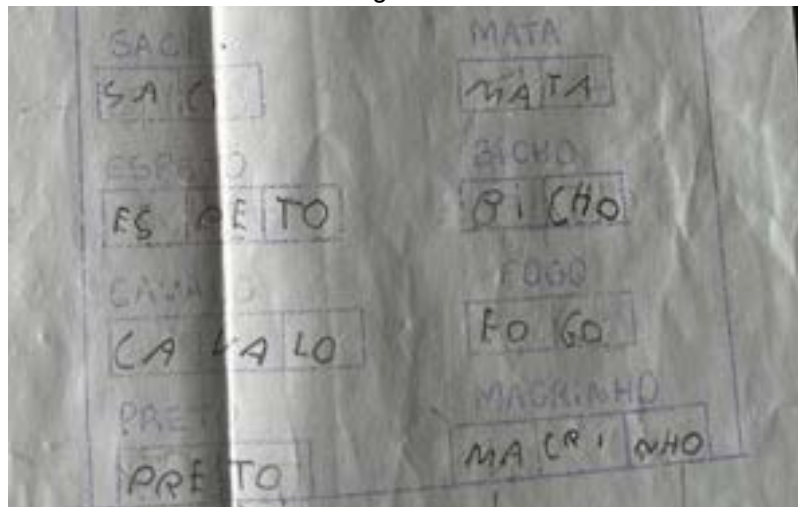 SACI
SA CI
ESPETO
ES PE TO
CAVALO
CA VA LO
PRETO
PRE TO
MATA
MA TA
BICHO
BI CHO
FOGO
FO GO
MAGRINHO
MA CRI NHO